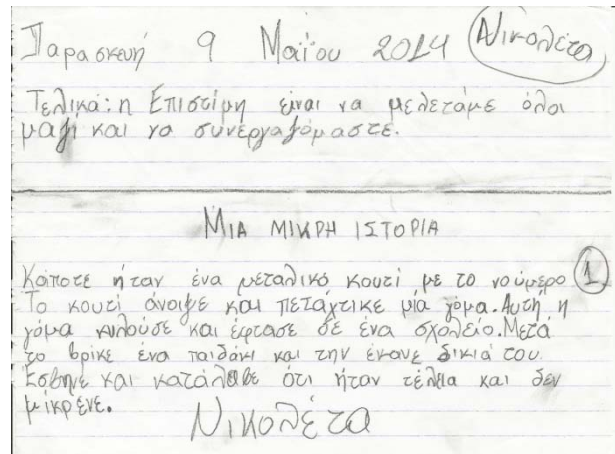 Παρασκευή 9 Μαΐου 2014 Νικολέτα
Τελικά: η Επιστίμη είναι να μελετάμε όλοι
μαζί και να συνεργαζόμαστε.
ΜΙΑ ΜΙΚΡΗ ΙΣΤΟΡΙΑ
Κάποτε ήταν ένα μεταλικό κουτί με το νούμερο 1
Το κουτί άνοιψε και πετάχτικε μία γόμα. Αυτή η
γόμα κυλούσε και έφτασε σε ένα σχολείο. Μετά
το βρίκε ένα παιδάκι και την έκανε δικιά του.
Έσβηνε και κατάλαβε ότι ήταν τέλεια και δεν
μίκρενε.
Νικολέτα